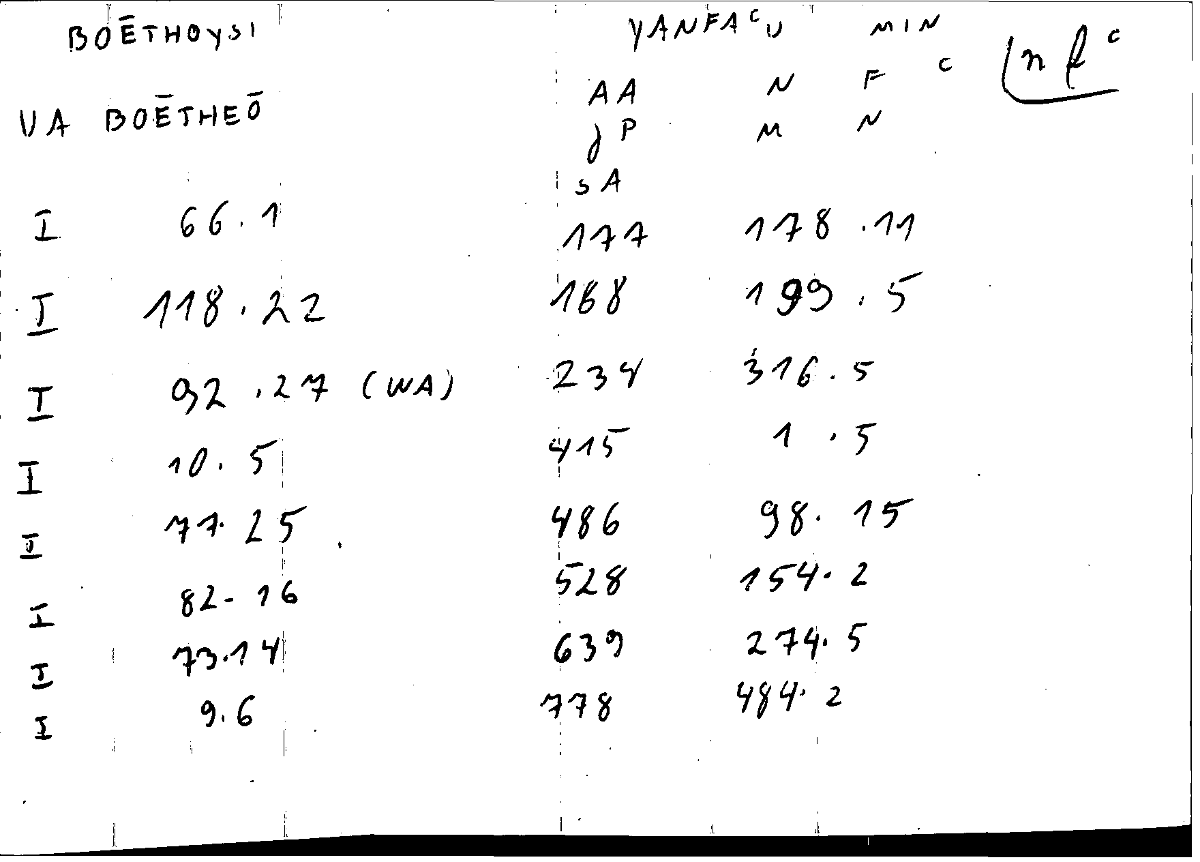 BOĒTHOYSI YANFACU MIN
AA N F C n f c
VA BOĒTHEŌ
J P M N
SA
I 66.1 177 178.11
I 118.22 168 199.5
I 92.27 (WA) 234 316.5
I 10.5 415 1.5
I 77.25 486 98.15
I 82-16 528 154.2
I 73.14 639 274.5
I 9.6 778 484.2